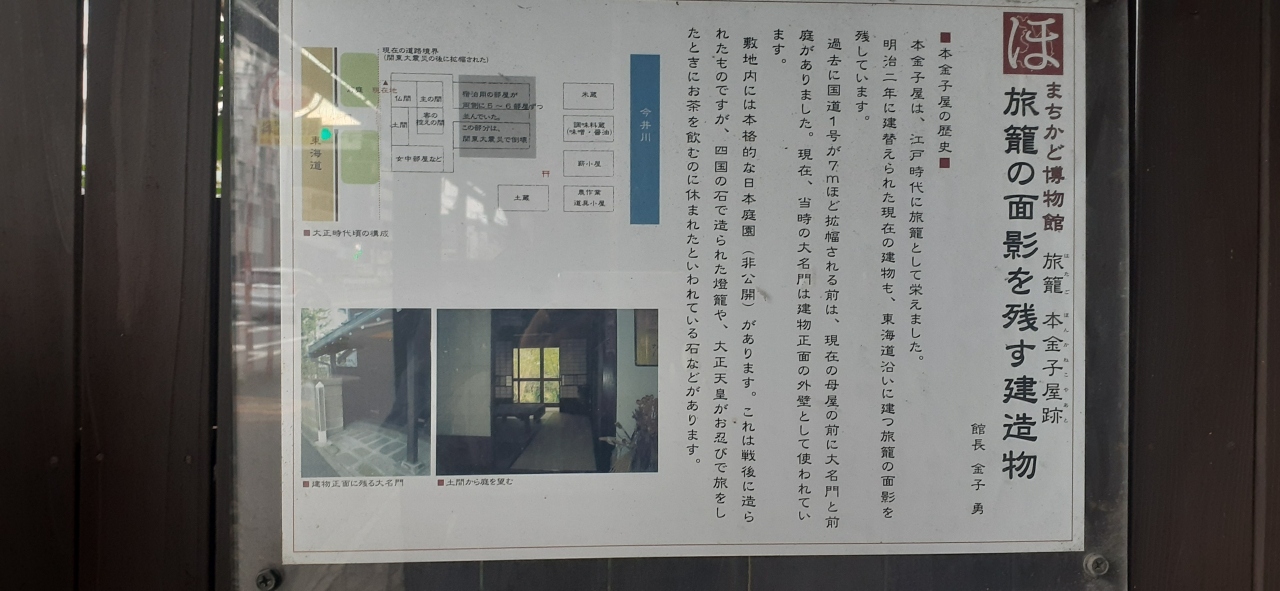 ほ
まちかど博物館 旅籠 本金子屋跡
はたご ほんかねこやあと
旅籠の面影を残す建造物
館長 金子 勇
■本金子屋の歴史■
本金子屋は、江戸時代に旅籠として栄えました。
明治二年に建替えられた現在の建物も、東海道沿いに建つ旅籠の面影を
残しています。
過去に国道1号が7mほど拡幅される前は、現在の母屋の前に大名門と前
庭がありました。現在、当時の大名門は建物正面の外壁として使われてい
ます。
敷地内には本格的な日本庭園（非公開）があります。これは戦後に造ら
れたものですが、四国の石で造られた燈籠や、大正天皇がお忍びで旅をし
たときにお茶を飲むのに休まれたといわれている石などがあります。
現在の道路境界
(関東大震災の後に拡幅された)
現在地
東海道
仏間
主の間
土間
客の
控えの間
女中部屋など
宿泊用の部屋が
両側に5～6部屋ずつ
並んでいた。
この部分は、
関東大震災で倒壊
米蔵
調味料蔵
(味噌・醤油)
薪小屋
農作業
道具小屋
土蔵
今井川
■大正時代頃の構成
■建物正面に残る大名門
■土間から庭を望む